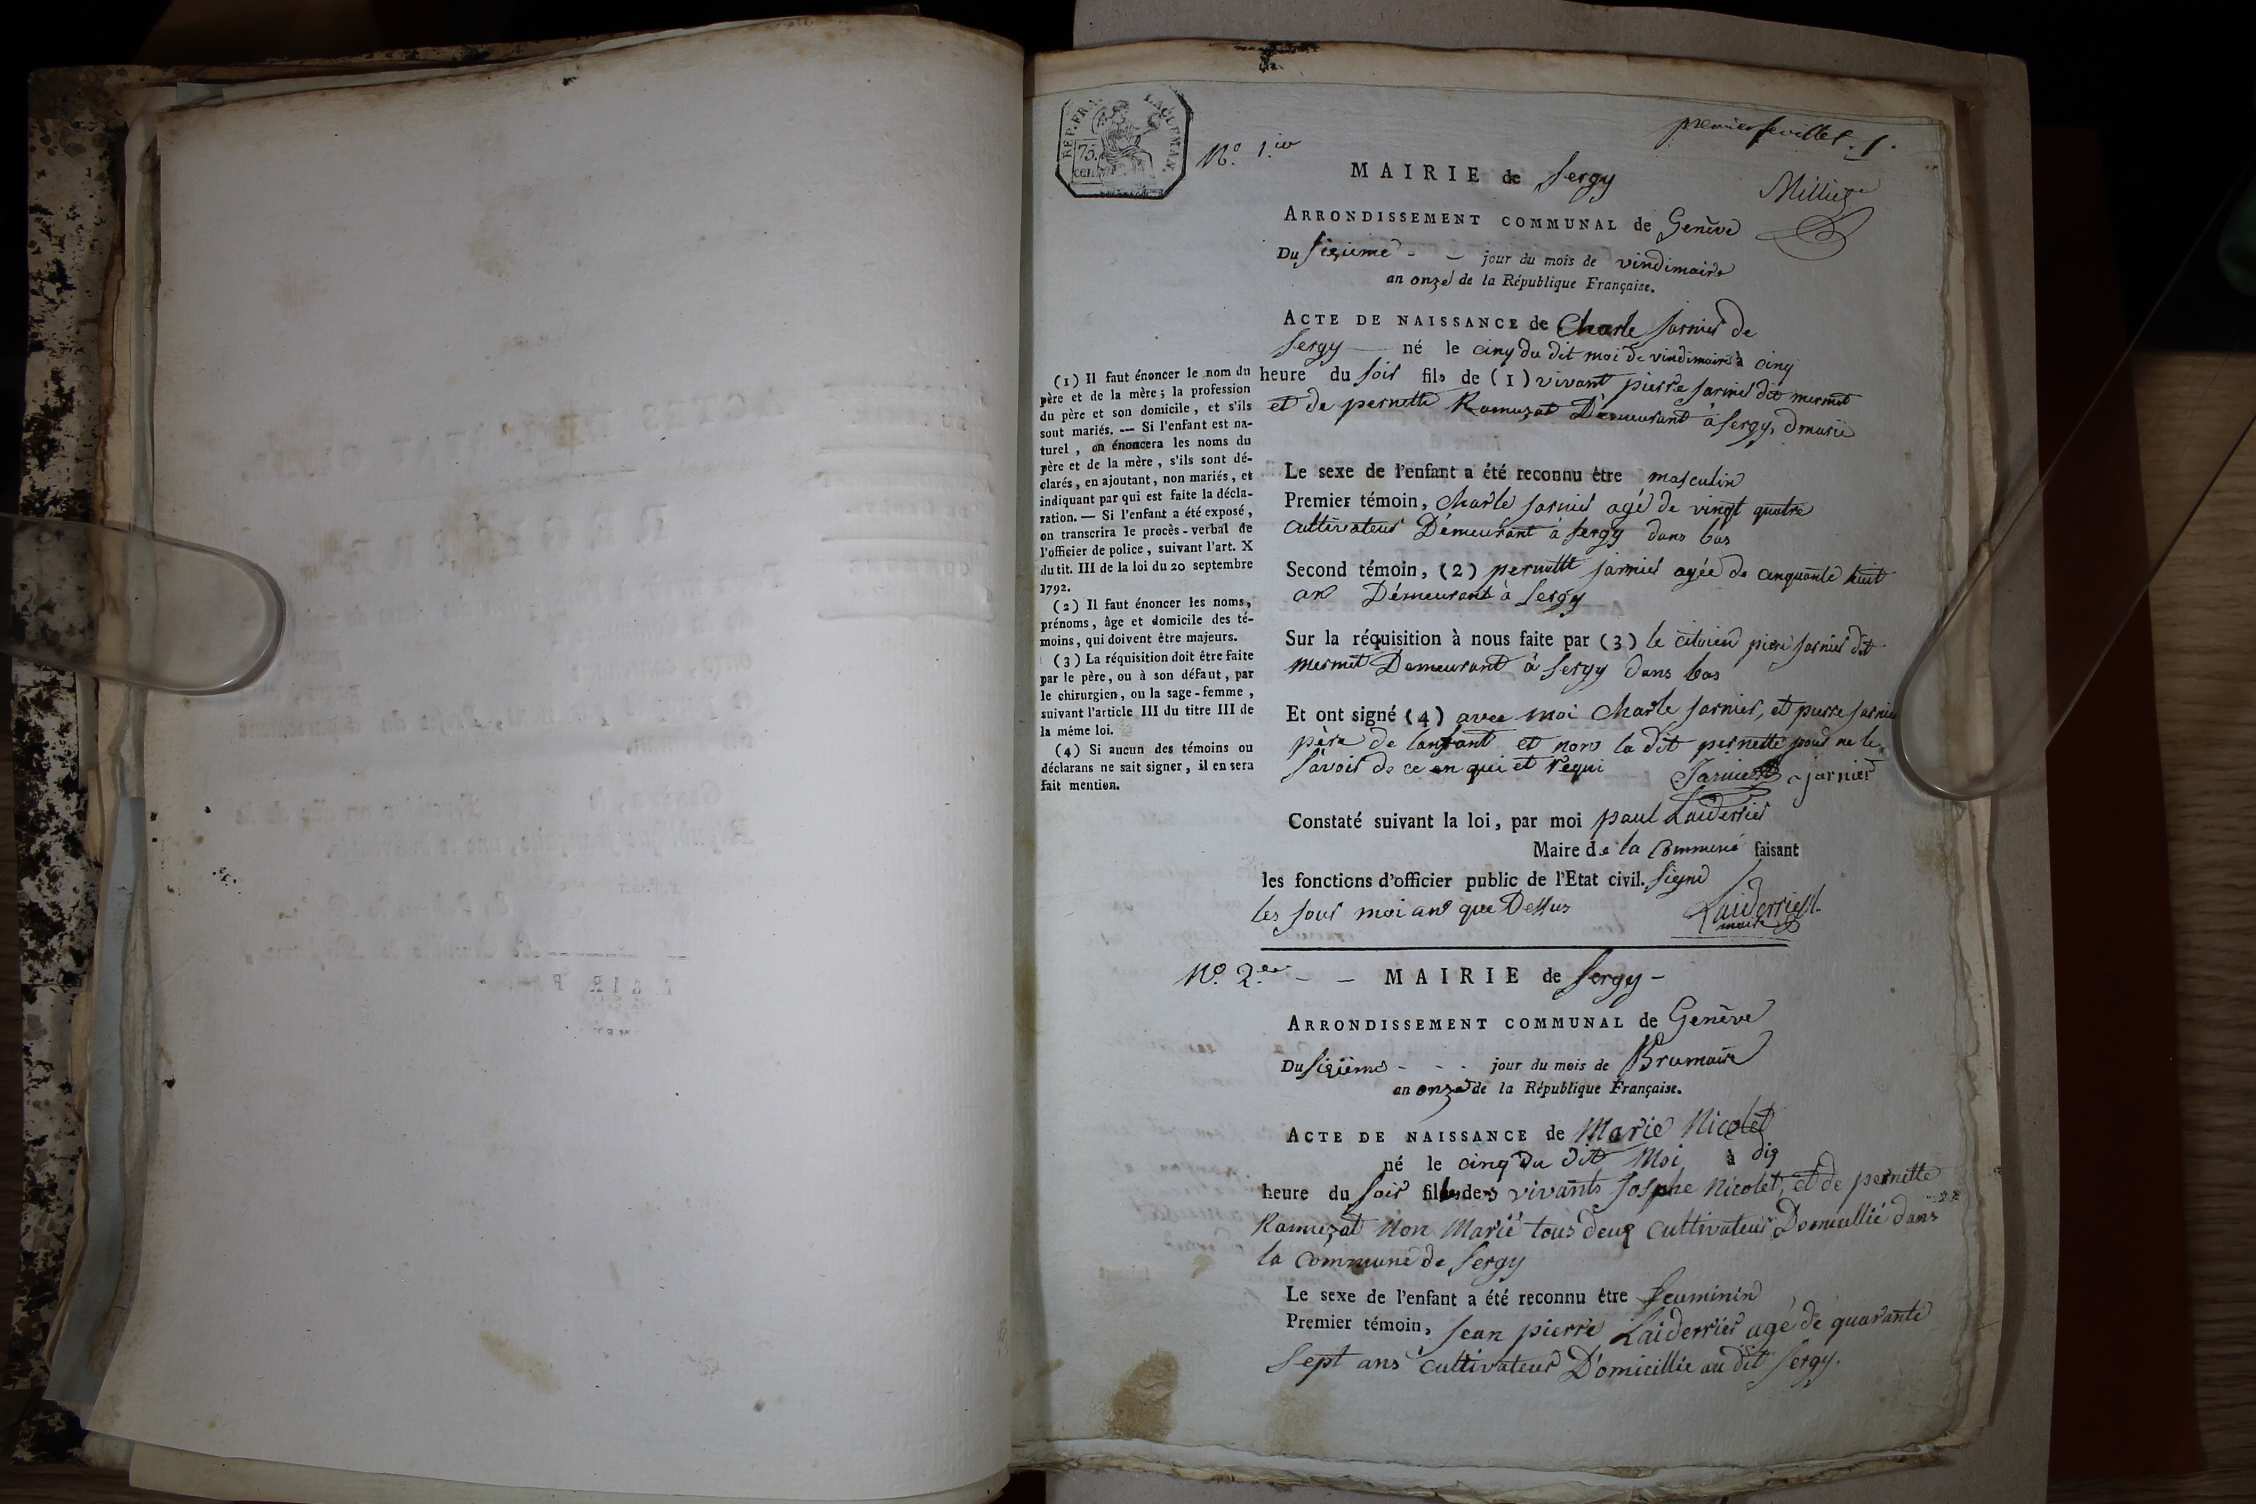 REP. FRA.
75.
cen.
premier feuillet. 1.
N.º 1.ier
MAIRIE de Sergy
Milliet
ARRONDISSEMENT COMMUNAL de Genève
Du sixieme - - jour du mois de vindimaire
an onze de la République Française.
ACTE DE NAISSANCE de Charle jarnier de
Sergy — né le cinq du dit moi de vindimaire à cinq
heure du soir fils de (1) vivant pierre jarnier dit mermet
et de pernette Ramuzat Demeurant à Sergy,
Le sexe de l'enfant a été reconnu être masculin
Premier témoin, Charle jarnier agé de vingt quatre
cultivateur Demeurant à Sergy dans bas
Second témoin, (2) pernette jarnier agée de cinquante huit
an Démeurant à Sergy
Sur la réquisition à nous faite par (3) le citoien pierre jarnier dit
mermet Demeurant à Sergy dans bas
Et ont signé (4) avec moi Charle jarnier, et pierre jarnier
père de lanfant et non la dit pernette pour ne le
savoir de ce en qui et requi
Jarnier jarnier
Constaté suivant la loi, par moi paul Laiderrier
Maire de la Commune faisant
les fonctions d'officier public de l'Etat civil. signé
les jour moi an que Dessus
Laiderrier
maire
(1) Il faut énoncer le nom du
père et de la mère; la profession
du père et son domicile, et s'ils
sont mariés. — Si l'enfant est na-
turel, on énoncera les noms du
père et de la mère, s'ils sont dé-
clarés, en ajoutant, non mariés, et
indiquant par qui est faite la décla-
ration. — Si l'enfant a été exposé,
on transcrira le procès-verbal de
l'officier de police, suivant l'art. X
du tit. III de la loi du 20 septembre
1792.
(2) Il faut énoncer les noms,
prénoms, âge et domicile des té-
moins, qui doivent être majeurs.
(3) La réquisition doit être faite
par le père, ou à son défaut, par
le chirurgien, ou la sage-femme,
suivant l'article III du titre III de
la même loi.
(4) Si aucun des témoins ou
déclarans ne sait signer, il en sera
fait mention.
N.º 2.e - - MAIRIE de Sergy -
ARRONDISSEMENT COMMUNAL de Genève
Du sixième - - - jour du mois de Brumaire
an onze de la République Française.
ACTE DE NAISSANCE de Marie Nicolet
né le cinq du dit Moi à dix
heure du soir fille des vivants Josphe Nicolet, et de pernette
Ramuzat Non Marié tous deux cultivateur Domicillié dans
la commune de Sergy
Le sexe de l'enfant a été reconnu être feuminin
Premier témoin, Jean pierre Laiderrier agé de quarante
Sept ans cultivateur Domicillié au dit Sergy.